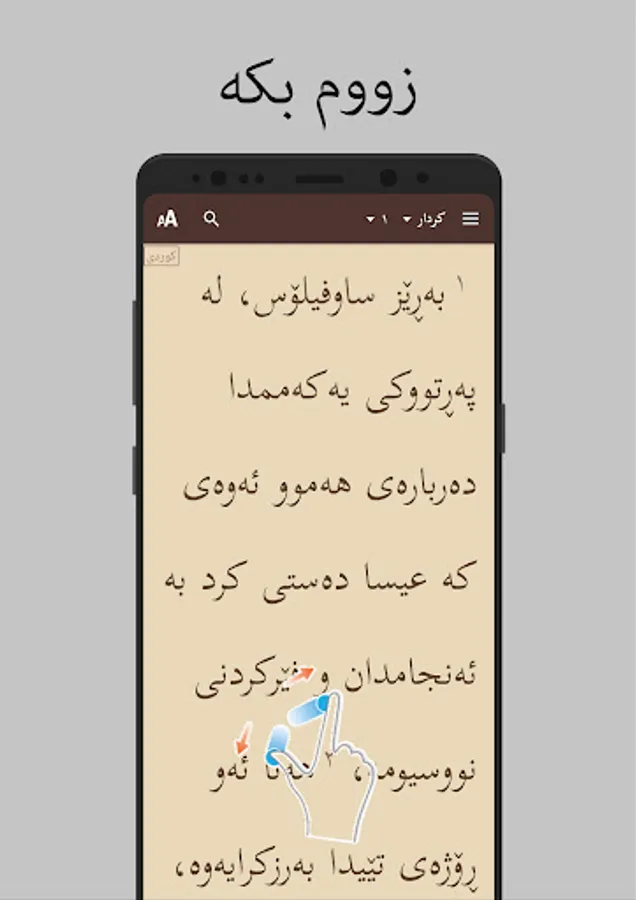 زووم بکە
کردار ١
AA
کوردی
١ بەڕێز ساوفیلۆس، لە
پەڕتووکی یەکەممدا
دەربارەی هەموو ئەوەی
کە عیسا دەستی کرد بە
ئەنجامدان و فێرکردنی
نووسیومە، ٢ هەتا ئەو
ڕۆژەی تێیدا بەرزکرایەوە،